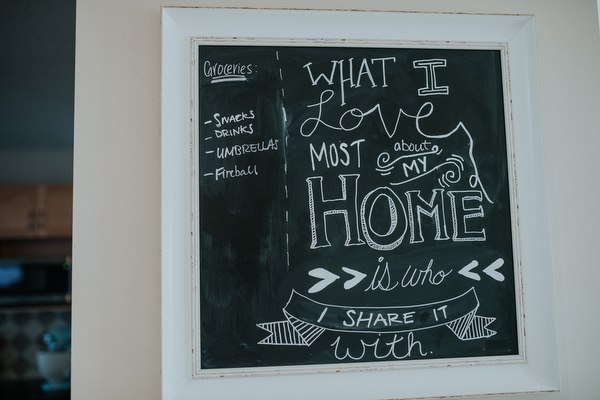 Groceries:
- SNACKS
- DRINKS
- UMBRELLAS
- Fireball
WHAT I
Love
MOST about
MY
HOME
is who
I SHARE IT
with.